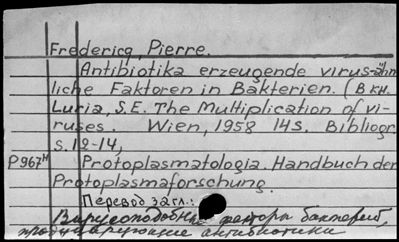 Fredericq, Pierre.
Antibiotika erzeugende virus-ähn
liche Faktoren in Bakterien. (В кн.
Luria, S.E. The Multiplication of vi-
ruses. Wien, 1958 14S. Bibliogr.
S.12-14,
P967н Protoplasmatologia. Handbuch der
Protoplasmaforschung.
Перевод загл.:
Вирусоподобные факторы бактерий,
продуцирующие антибиотики